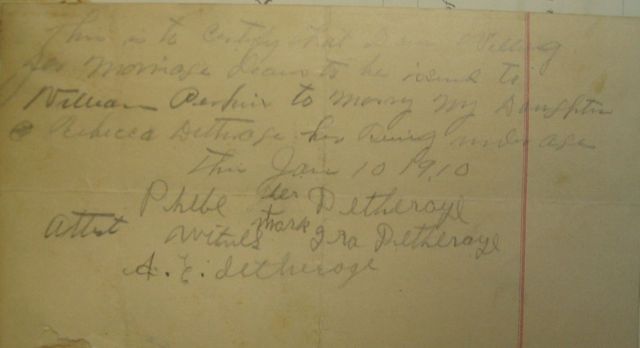 This is to Certify that I am Willing
for Marriage License to be isued to
William Perkins to Marry My Daughter
Rebecca Detherage her being under age
This Jan 10 1910
Phebe her Detheroye
mark
Attest Witnes Ira Detheroye
A. E. detherage